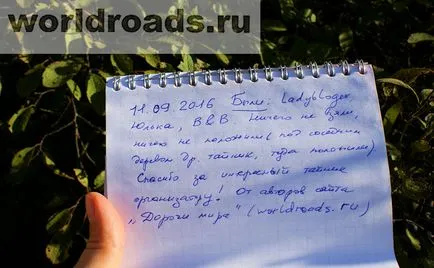 worldroads.ru
11.09.2016 Были: Ladyblogger
Юлька, ВВВ. Ничего не взяли,
ничего не положили (под соседним
деревом др. тайник, туда положили)
Спасибо за интересный тайник
организатору! От авторов сайта
„Дороги мира" (worldroads.ru)